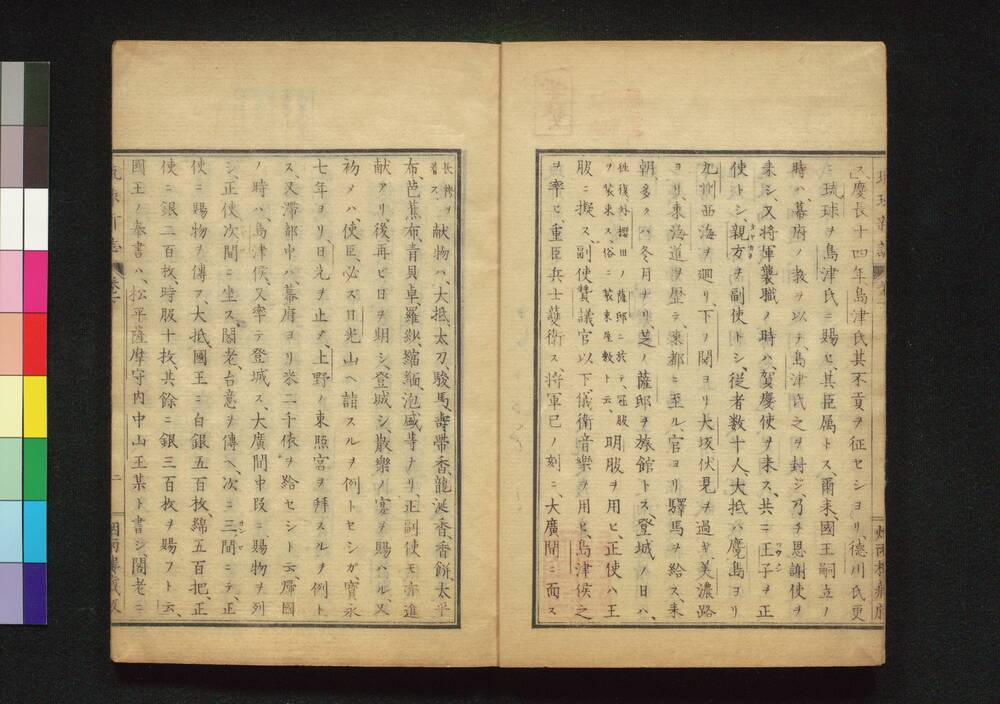 ス、慶長十四年島津氏其不貢ヲ征セシヨリ、德川氏更
ニ琉球ヲ島津氏ニ賜ヒ、其臣属トス、爾来國王嗣立ノ
時ハ、幕府ノ教ヲ以テ、島津氏之ヲ封ジ乃チ恩謝使ヲ
来シ、又将軍襲職ノ時ハ、賀慶使ヲ来ス、共ニ王子ヲ正
使トシ、親方ヲ副使トシ、従者数十人、大抵バ麑島ヨリ
九州西海ヲ廻リ、下ノ関ヨリ大坂伏見ヲ過ギ美濃路
ヨリ、東海道ヲ歴テ東都ニ至ル、官ヨリ驛馬ヲ給ス、来
朝多クハ冬月ナリ、芝ノ薩邸ヲ旅館トス、登城ノ日ハ、
往復外櫻田ノ薩邸ニ於テ、冠服
ヲ装束ス、俗ニ装束屋敷ト云、
明服ヲ用ヒ、正使ハ王
服ニ擬ス、副使賛議官以下、儀衛音樂ヲ用ヒ、島津侯之
ヲ率ヒ、重臣兵士護衛ス、将軍巳ノ刻ニ、大廣間ニ面ス
長袴ヲ
着ス、
献物ハ、大抵、太刀、駿馬、壽帶香、龍涎香、香餅、太平
布、芭蕉布、青貝卓、羅紗、縮緬、泡盛等ナリ、正副使モ亦進
献アリ、後、再ヒ日ヲ期シ、登城シ、散樂ノ宴ヲ賜ハル、又
初メハ、使臣、必ス日光山ヘ詣スルヲ例トセシガ、寶永
七年ヨリ、日光ヲ止メ、上野ノ東照宮ヲ拜スルヲ例ト
ス、又滞都中ハ、幕府ヨリ米二千俵ヲ給セシト云、帰國
ノ時ハ、島津侯、又率テ登城ス、大廣間中段ニ、賜物ヲ列
シ、正使次間ニ坐ス、閣老、台意ヲ傳ヘ、次ニ三ノ間ニテ、正
使ニ賜物ヲ傳フ、大抵國王ニ白銀五百枚、綿五百把、正
使ニ銀二百枚、時服十枚、其餘ニ銀三百枚ヲ賜フト云、
國王ノ奉書ハ、松平薩摩守内中山王某ト書シ、閣老ニ
二